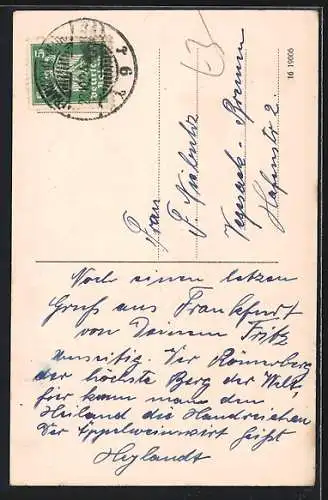 5
16 19006
Frau
F.
Vegesack-Bremen
Hafenstr 2.
Noch einen letzen
Gruß aus Frankfurt
von Deinem Fritz
umseitig. Der Römerberg
der höchste Berg der Welt,
hier kann man dem
Heiland die Hand reichen
Der Eppelweinwirt heißt
Heylandt